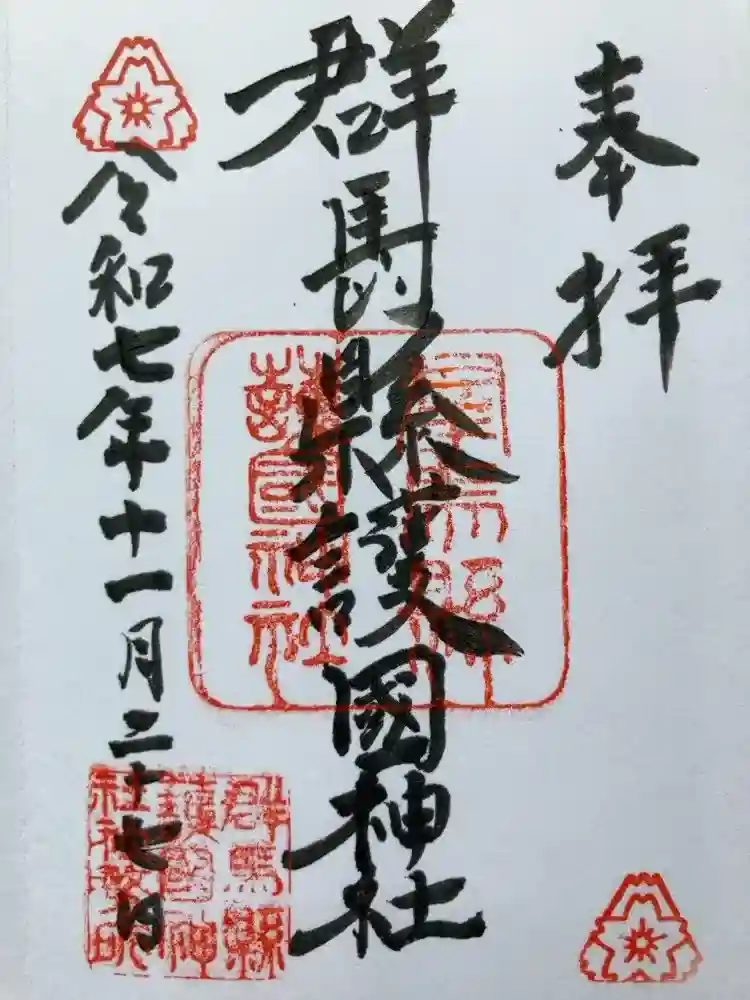 奉拝
群馬縣護國神社
令和七年十一月二十七日
群馬縣
護國神社
群馬縣
護國神
社社務所